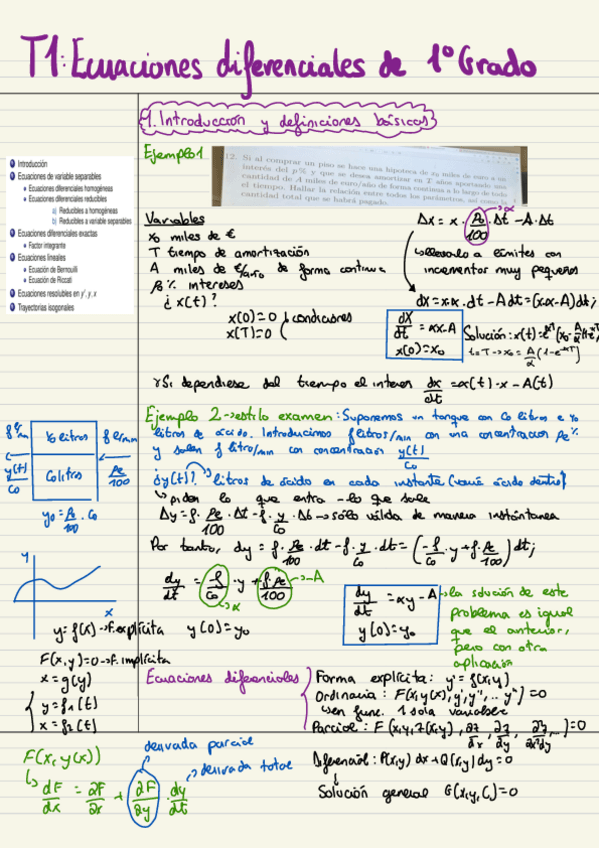 T1: Ecuaciones diferenciales de 1º Grado
1. Introducción y definiciones básicas
Introducción
Ecuaciones de variable separables
Ecuaciones diferenciales homogéneas
Ecuaciones diferenciales reducibles
a) Reducibles a homogéneas
b) Reducibles a variable separables
Ecuaciones diferenciales exactas
Factor integrante
Ecuaciones lineales
Ecuación de Bernouilli
Ecuación de Riccati
Ecuaciones resolubles en y', y, x
Trayectorias isogonales
Ejemplo 1
12. Si al comprar un piso se hace una hipoteca de x₀ miles de euro a un
interés del p% y que se desea amortizar en T años aportando una
cantidad de A miles de euro/año de forma continua a lo largo de todo
el tiempo. Hallar la relación entre todos los parámetros, así como la
cantidad total que se habrá pagado.
Variables
x₀ miles de €
T tiempo de amortización
A miles de €/año de forma continua
P₀ % intereses
¿x(t)?
x(0)=0
x(T)=0
condiciones
→α
Δx = x · P₀/100 · Δt - A · Δt
llevándolo a límites con
incrementos muy pequeños
dx = x·α · dt - A dt = (x·α - A) dt;
dx/dt = αx - A
x(0) = x₀
Solución: x(t) =
t=T → x₀ = A/α (1-e^-αT)
Si dependiese del tiempo el interes dx/dt = α(t) · x - A(t)
Ejemplo 2 → estilo examen: Suponemos un tanque con C₀ litros e y₀
litros de ácido. Introducimos f litros/min con una concentración Pe%
y salen f litro/min con concentración y(t)/C₀
f ℓ/min
y₀ litros
f ℓ/min
y(t)/C₀
C₀ litro
Pe/100
y₀ = Pe/100 · C₀
¿y(t)? litros de ácido en cada instante (vaué ácido dentro)
piden lo que entra - lo que sale
Δy = f · Pe/100 · Δt - f · y/C₀ · Δt → sólo válida de manera instántanea
Por tanto, dy = f · Pe/100 · dt - f · y/C₀ · dt = (-f/C₀ · y + f · Pe/100) dt;
dy/dt = -f/C₀ · y + f · Pe/100 → -A
→α
dy/dt = αy - A
y(0) = y₀
la solución de este
problema es igual
que el anterior,
pero con otra
aplicación
y
x
y = f(x) → f. explícita
y(0) = y₀
F(x,y)=0 → f. implícita
x = g(y)
y = f₁(t)
x = f₂(t)
Ecuaciones diferenciales
Forma explícita: y' = f(x,y)
Ordinaria: F(x,y(x),y',y'',...yⁿ)=0
en func. 1 sola variable
Parcial: F(x,y,z(x,y), ∂z/∂x, ∂z/∂y, ∂²z/∂x∂y, ...)=0
Diferencial: P(x,y) dx + Q(x,y) dy = 0
Solución general G(x,y,C)=0
F(x,y(x))
derivada parcial
derivada total
dF/dx = ∂F/∂x + ∂F/∂y · dy/dt